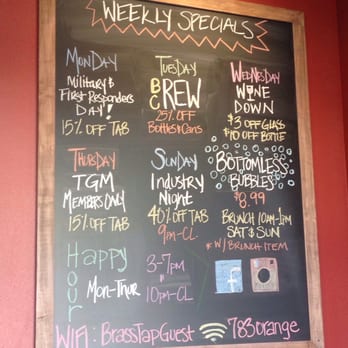 WEEKLY SPECIALS
MONDAY
Military &
First Responders
DAY!
15% OFF TAB
TUESDAY
BC BREW CREW
25% OFF
Bottles & Cans
WEDNESDAY
WINE
DOWN
$3 OFF GLASS
$10 OFF BOTTLE
THURSDAY
TGM
MEMBERS ONLY
15% OFF TAB
SUNDAY
Industry
Night
40% OFF TAB
9PM-CL
BOTTOMLESS
BUBBLES
$8.99
BRUNCH 10AM-1PM
SAT & SUN
* W/ BRUNCH ITEM
Happy
Hour
Mon-Thur
3-7PM
10PM-CL
f
WIFI: BrassTapGuest 783orange